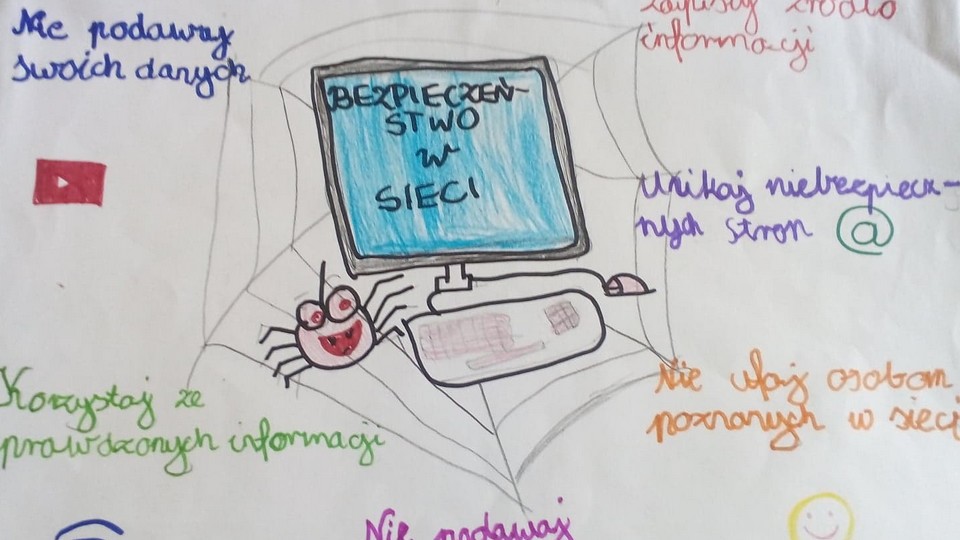 Nie podawaj
swoich danych
Zapisuj źródło
informacji
BEZPIECZEŃ-
STWO
W
SIECI
Unikaj niebezpiecz-
nych stron @
Korzystaj ze
prawdzonych informacji
Nie ufaj osobom
poznanych w sieci
Nie podawaj